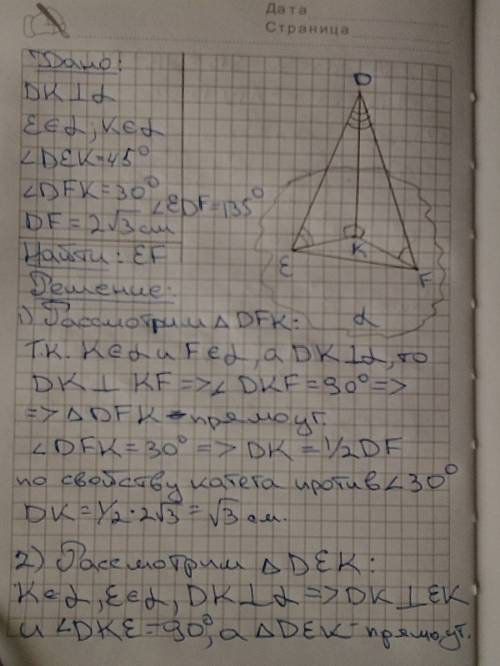 Дата
Страница
Дано:
DK⊥α
E∈α; K∈α
∠DEK=45°
∠DFK=30°
∠EDF=135°
DF=2√3 см
Найти: EF
D
E
K
F
α
Решение:
1) Рассмотрим △DFK:
Т.к. K∈α и F∈α, а DK⊥α, то
DK⊥KF=>∠DKF=90°=>
=>△DFK - прямоуг.
∠DFK=30°=>DK=1/2DF
по свойству катета против ∠30°
DK=1/2·2√3=√3 см.
2) Рассмотрим △DEK:
K∈α, E∈α, DK⊥α=>DK⊥EK
и ∠DKE=90°, а △DEK - прямоуг.